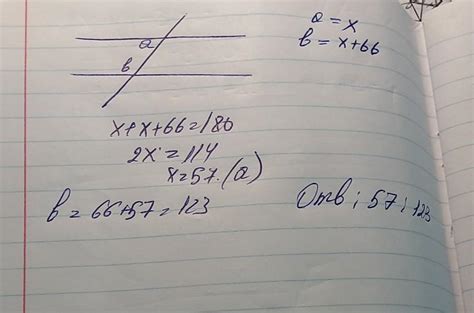 a
b
a = x
b = x+66
x+x+66=180
2x=114
x=57 (a)
b = 66+57=123
Отв: 57; 123